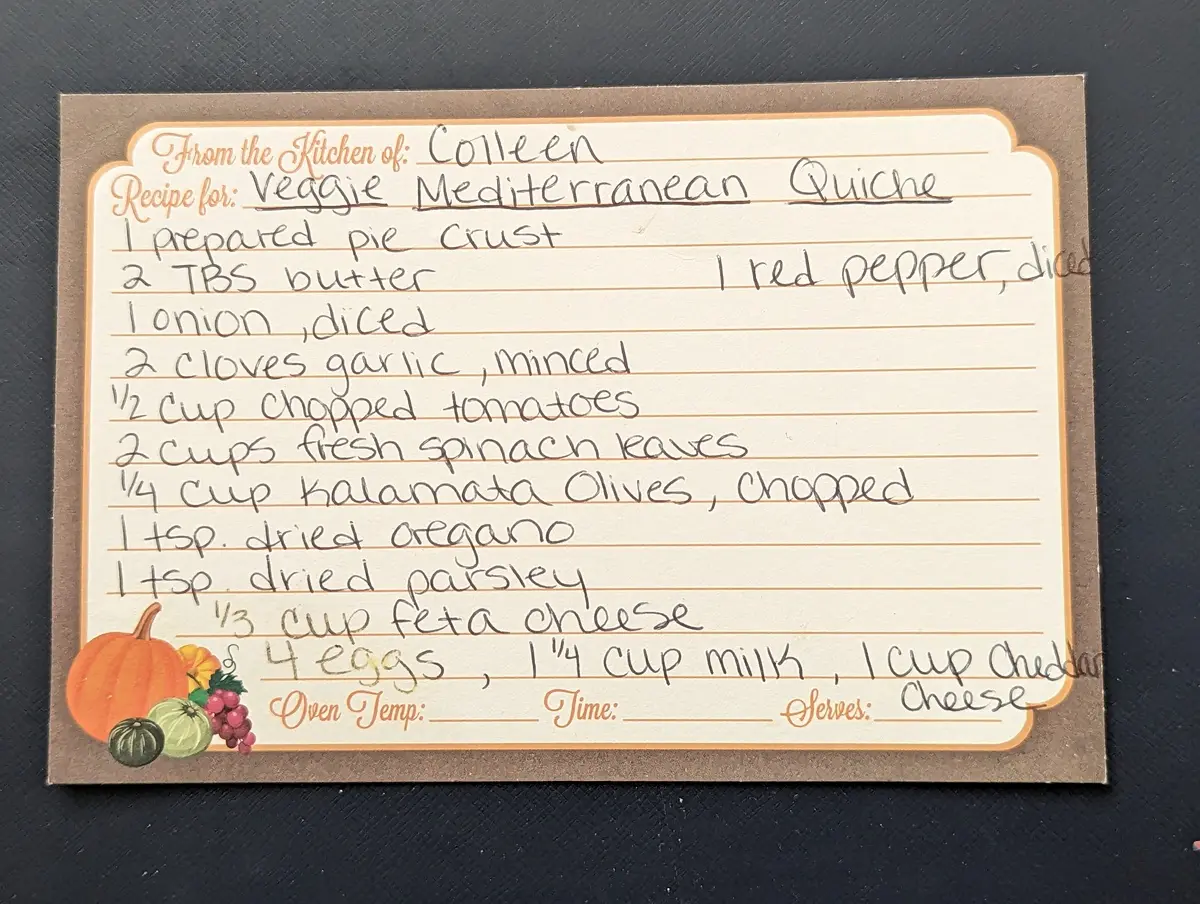 From the Kitchen of: Colleen
Recipe for: Veggie Mediterranean Quiche
1 prepared pie crust
2 TBS butter 1 red pepper, diced
1 onion, diced
2 cloves garlic, minced
1/2 cup chopped tomatoes
2 cups fresh spinach leaves
1/4 cup Kalamata Olives, chopped
1 tsp. dried oregano
1 tsp. dried parsley
1/3 cup feta cheese
4 eggs, 1 1/4 cup milk, 1 cup Cheddar
Cheese
Oven Temp: Time: Serves: